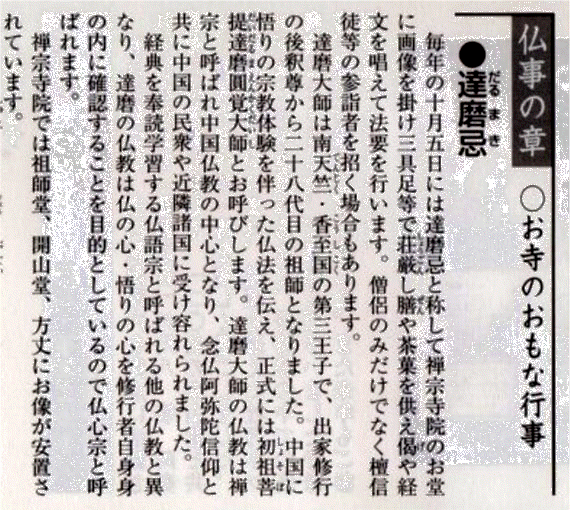 仏事の章
○お寺のおもな行事
●達磨忌
だるまき
毎年の十月五日には達磨忌と称して禅宗寺院のお堂
に画像を掛け三具足等で荘厳し膳や茶菓を供え偈や経
文を唱えて法要を行います。僧侶のみだけでなく檀信
徒等の参詣者を招く場合もあります。
達磨大師は南天竺・香至国の第三王子で、出家修行
の後釈尊から二十八代目の祖師となりました。中国に
悟りの宗教体験を伴った仏法を伝え、正式には初祖菩
提達磨圓覚大師とお呼びします。達磨大師の仏教は禅
宗と呼ばれ中国仏教の中心となり、念仏阿弥陀信仰と
共に中国の民衆や近隣諸国に受け容れられました。
経典を奉読学習する仏語宗と呼ばれる他の仏教と異
なり、達磨の仏教は仏の心・悟りの心を修行者自身身
の内に確認することを目的としているので仏心宗と呼
ばれます。
禅宗寺院では祖師堂、開山堂、方丈にお像が安置さ
れています。